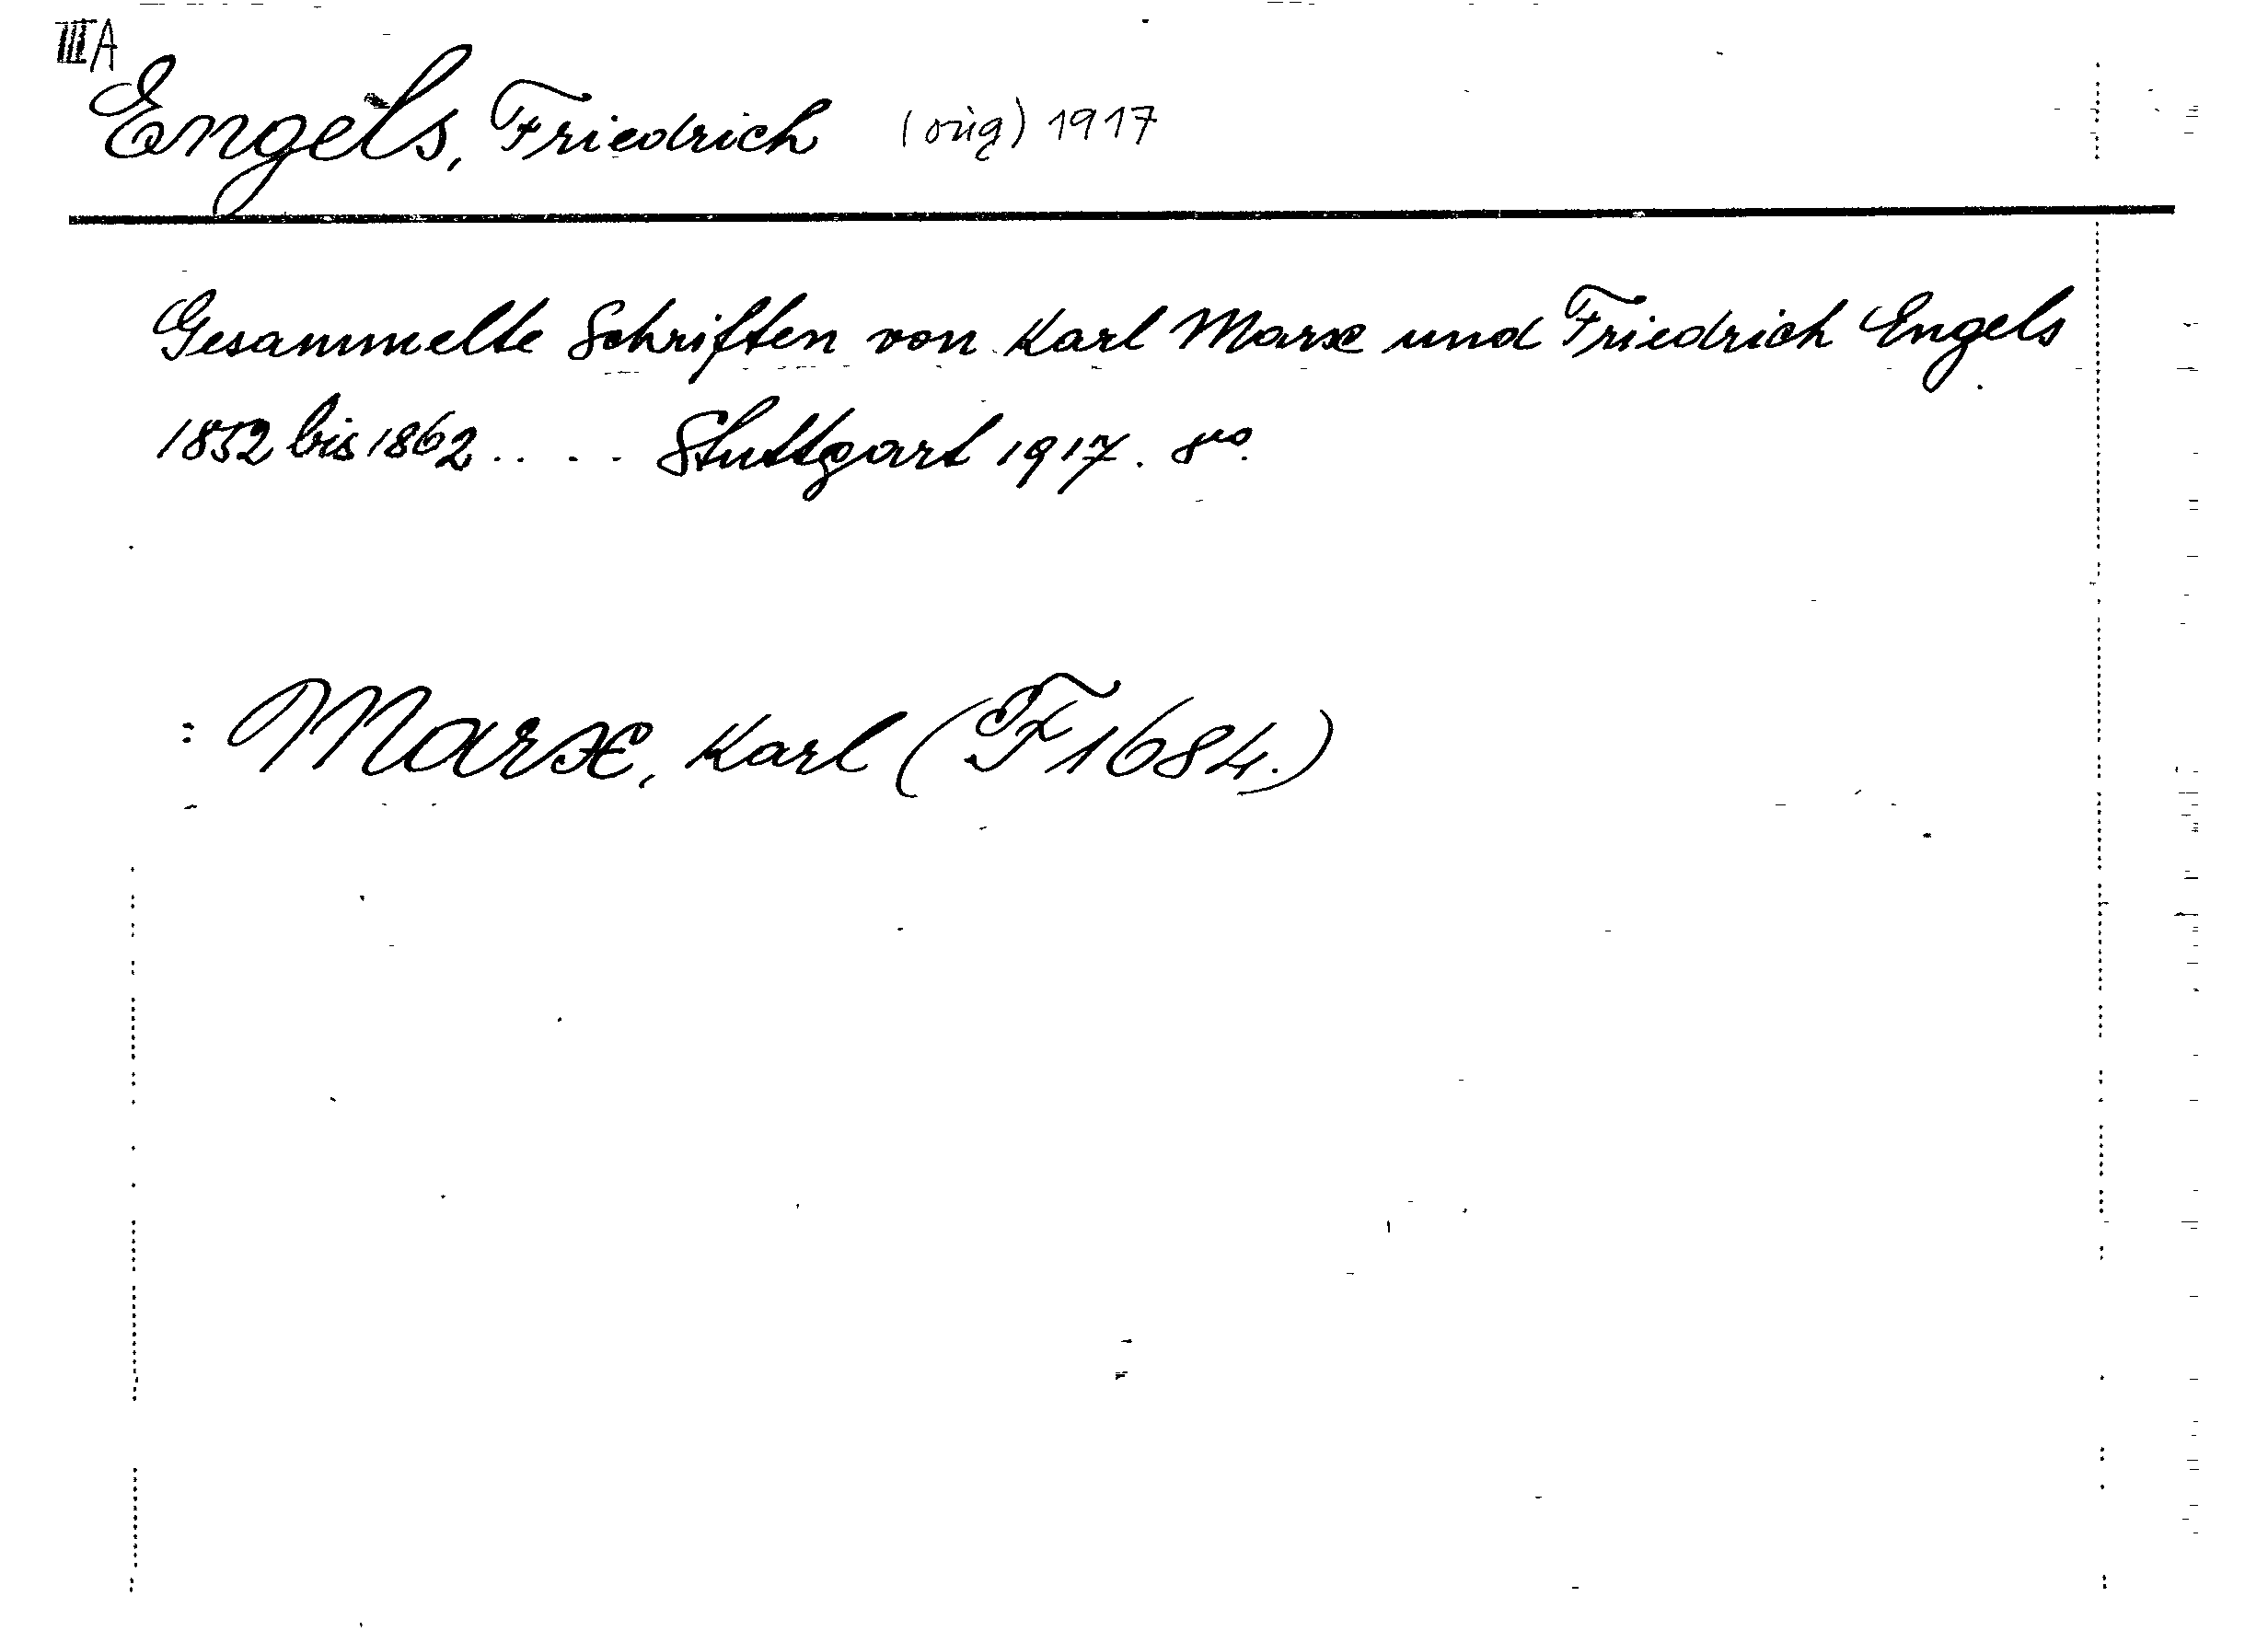 III A
Engels, Friedrich (orig) 1917
Gesammelte Schriften von Karl Marx und Friedrich Engels
1852 bis 1862 . . . . . Stuttgart 1917. 8vo.
: Marx, Karl (F 1684.)